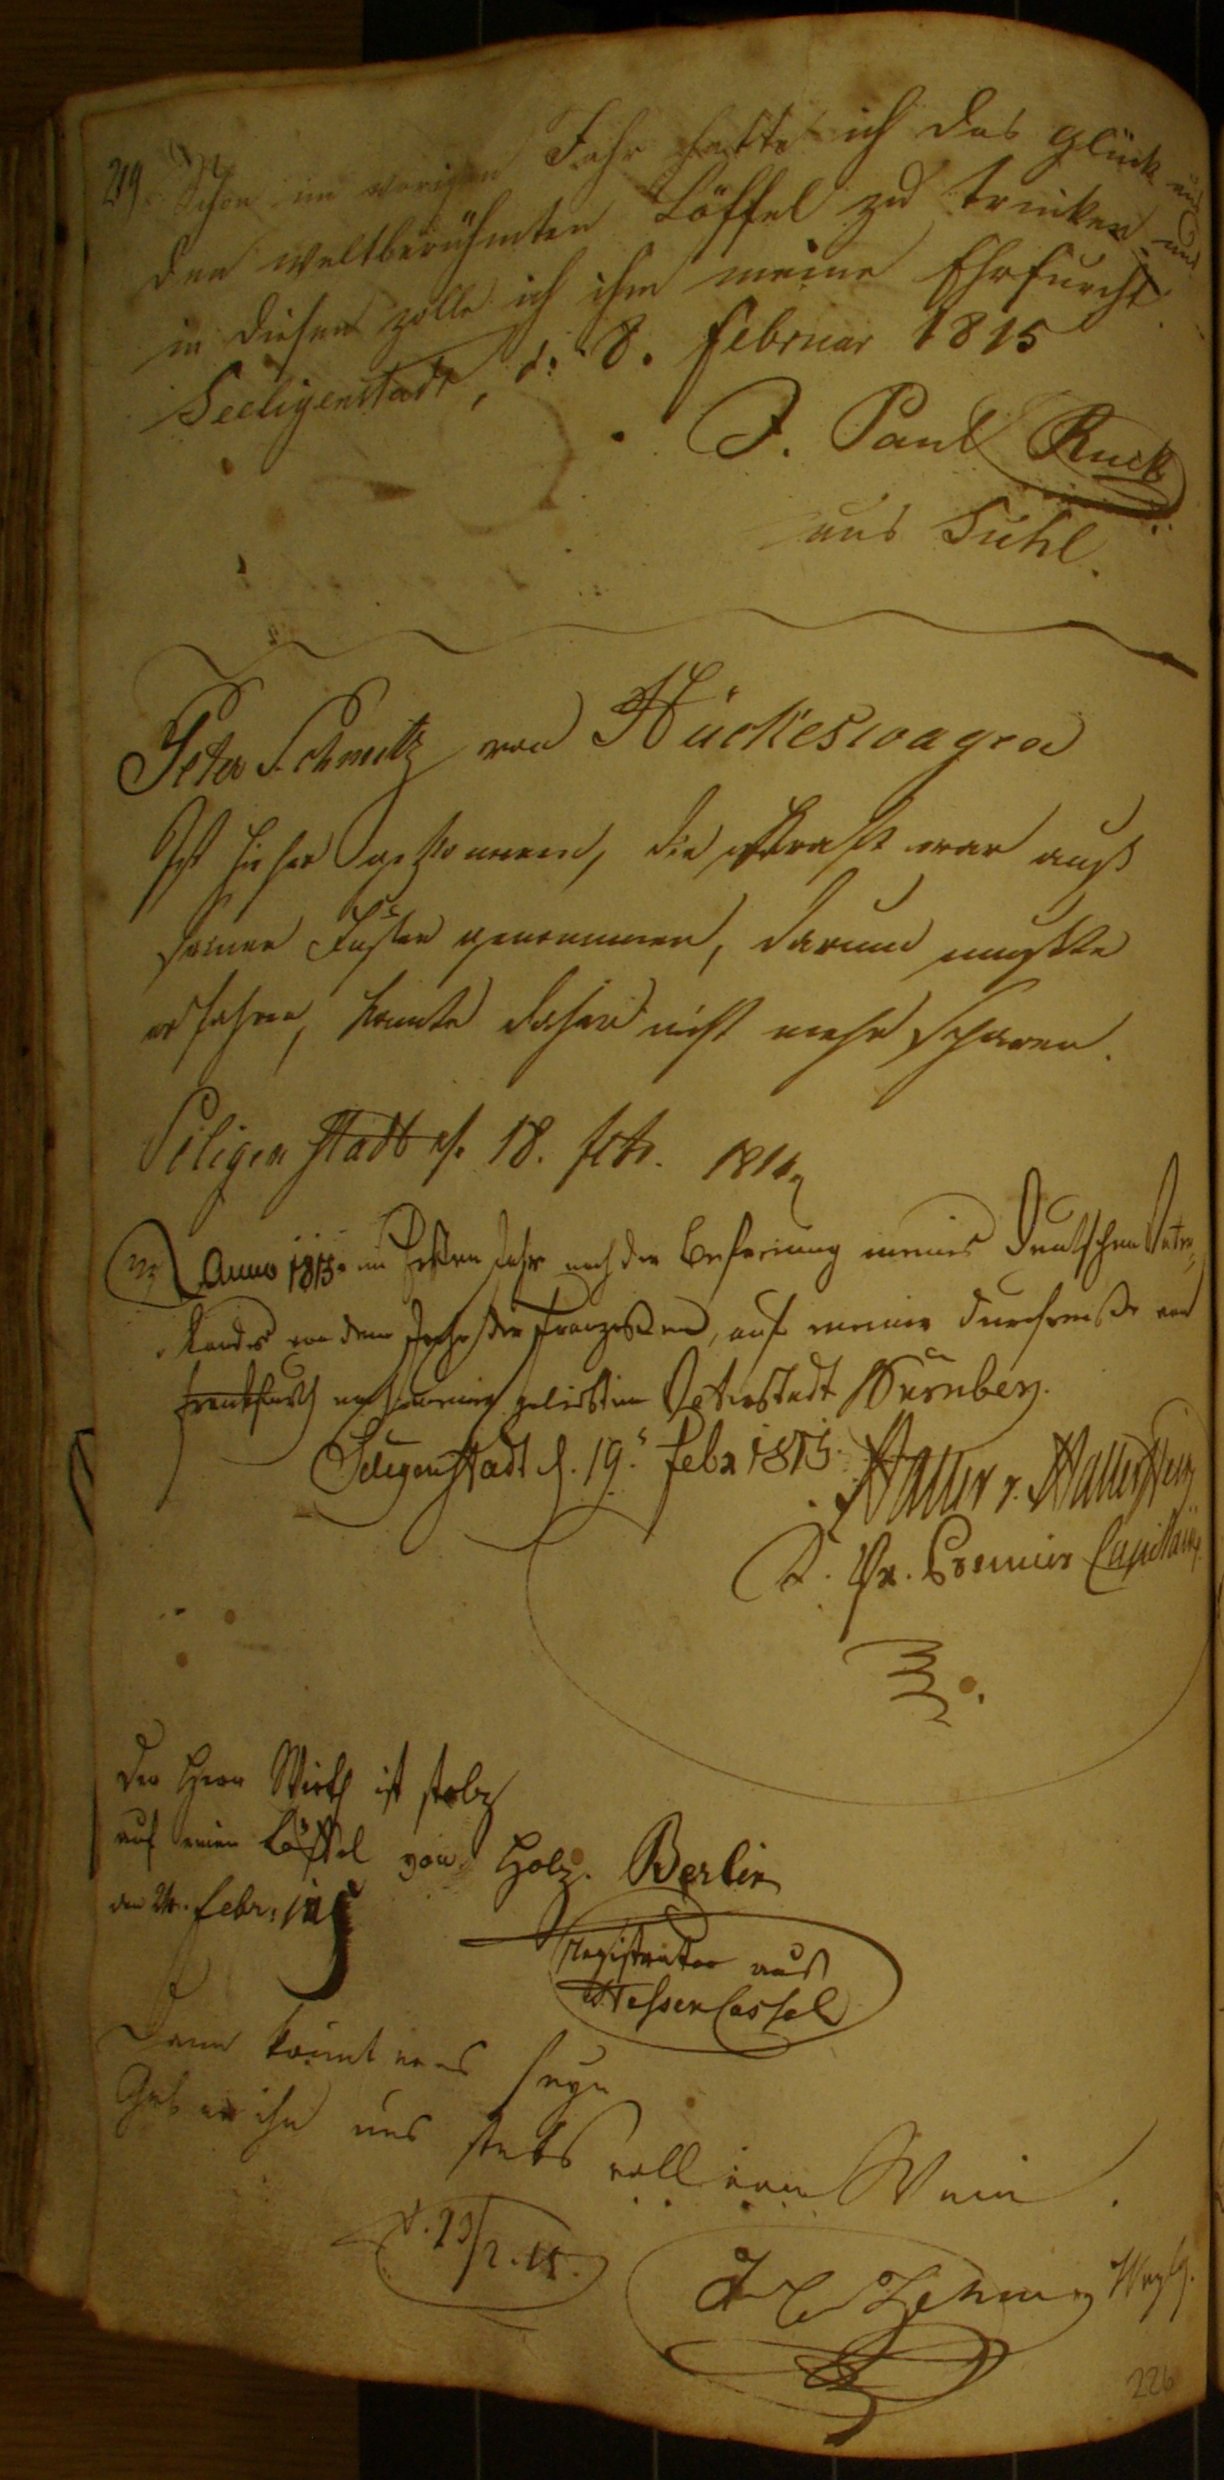 219. Schon im vorigen Jahr hatte ich das Glück aus
den weltberühmten Löffel zu trinken und
in diesem zolle ich ihm meine Ehrfurcht.
Seeligenstadt, d. 8. Februar 1815
J. Paul Ruck
aus Suhl.
Peter Schmitz von Hückeswagen
Ist hierher gekommen, die Kraft war auß
seinen Füßen genommen, darum mußte
er fahren, konnte daher nicht mehr sparen.
Seligenstadt d. 18. febr.
Anno 1815. im Ersten Jahr nach der Befreiung meines Deutschen Vater-
landes von dem Joche der Franzosen, auf meiner Durchreiße von
Frankfurth nach meiner geliebten Vaterstadt Nürnberg.
Seligenstadt d. 19. Febr 1815.
Haller v. Hallerstein
K. Premier Capitain
Der Herr Wirth ist stolz
auf einen Löffel von Holz. Berlin
den 24. Febr: 1815
Registrator aus
HessenCassel
Dann könnt er es seyn
Gäb er ihn uns stets voll von Wein.
d. 23/2. 15.
226